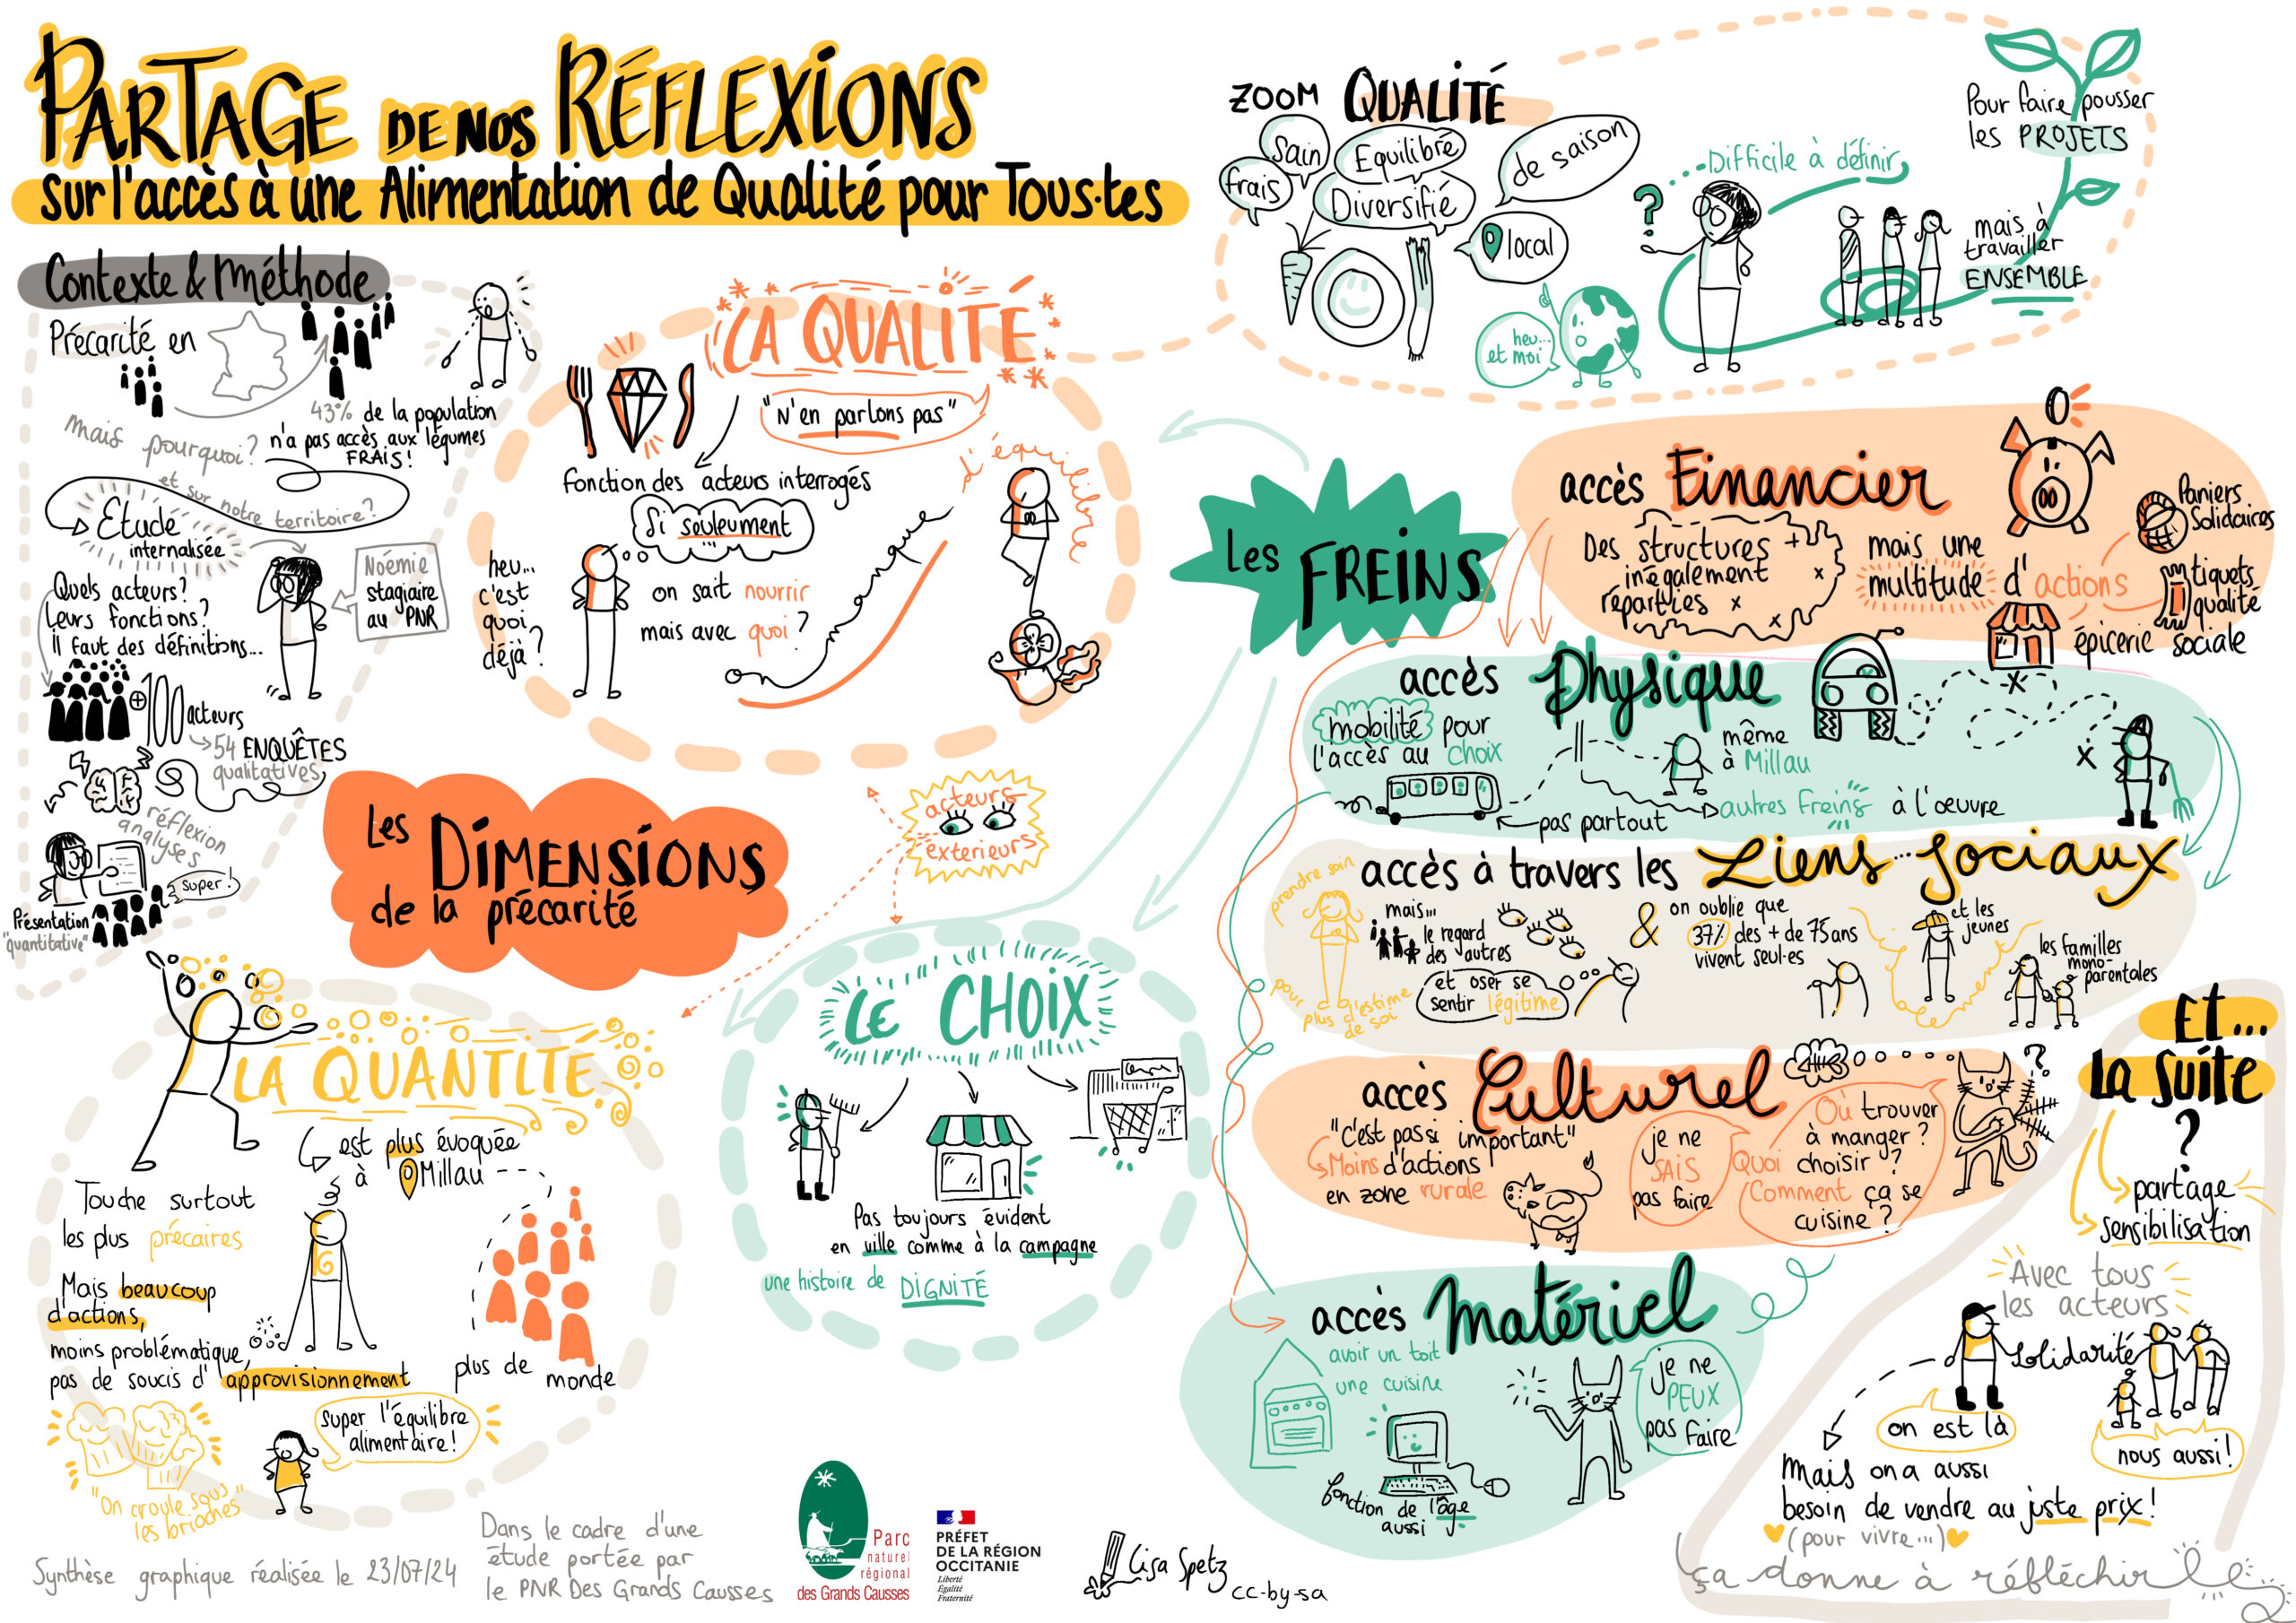 PARTAGE DE NOS RÉFLEXIONS
sur l'accès à une Alimentation de Qualité pour Tous·tes
Contexte & Méthode
Précarité en
43% de la population
n'a pas accès aux légumes
FRAIS!
Mais pourquoi?
et sur notre territoire?
Etude
internalisée
Noémie
stagiaire
au PNR
Quels acteurs?
Leurs fonctions?
Il faut des définitions...
+100 acteurs
54 ENQUÊTES
qualitatives
réflexion
analyses
Super!
Présentation
"quantitative"
LA QUALITÉ
"N'en parlons pas"
Fonction des acteurs interrogés
Si seulement
...
heu...
c'est
quoi
déjà?
on sait nourrir
mais avec quoi?
on manque
d'équilibre
ZOOM QUALITÉ
Sain
frais
Equilibré
Diversifié
de saison
local
heu...
et moi
?
Difficile à définir
mais à
travailler
ENSEMBLE
Pour faire pousser
les PROJETS
Les DIMENSIONS
de la précarité
acteurs
exterieurs
LA QUANTITÉ
est plus évoquée
à Millau
Touche surtout
les plus précaires
Mais beaucoup
d'actions,
moins problématique,
pas de soucis d'approvisionnement
plus de monde
"On croule sous
les brioches"
Super l'équilibre
alimentaire!
LE CHOIX
Pas toujours évident
en ville comme à la campagne
une histoire de DIGNITÉ
Les FREINS
accès Financier
Des structures
inégalement
réparties
mais une
multitude d'actions
Paniers
Solidaires
tiquets
qualité
épicerie sociale
accès Physique
mobilité pour
l'accès au choix
pas partout
même
à Millau
autres freins à l'œuvre
accès à travers les Liens sociaux
prendre soin
pour plus d'estime
de soi
mais...
le regard
des autres
et oser se
sentir légitime
&
on oublie que
37% des + de 75 ans
vivent seul·es
et les
jeunes
les familles
mono-
parentales
accès Culturel
"C'est pas si important"
Moins d'actions
en zone rurale
je ne
SAIS
pas faire
Où trouver
à manger?
Quoi choisir?
Comment ça se
cuisine?
?
accès Matériel
avoir un toit
une cuisine
fonction de l'âge
aussi
je ne
PEUX
pas faire
Et...
la suite
?
partage
sensibilisation
Avec tous
les acteurs
Solidarité
on est là
nous aussi!
Mais on a aussi
besoin de vendre au juste prix!
(pour vivre...)
ça donne à réfléchir
Synthèse graphique réalisée le 23/07/24
Dans le cadre d'une
étude portée par
le PNR Des Grands Causses
Parc
naturel
régional
des Grands Causses
PRÉFET
DE LA RÉGION
OCCITANIE
Liberté
Égalité
Fraternité
Lisa Spetz
cc-by-sa